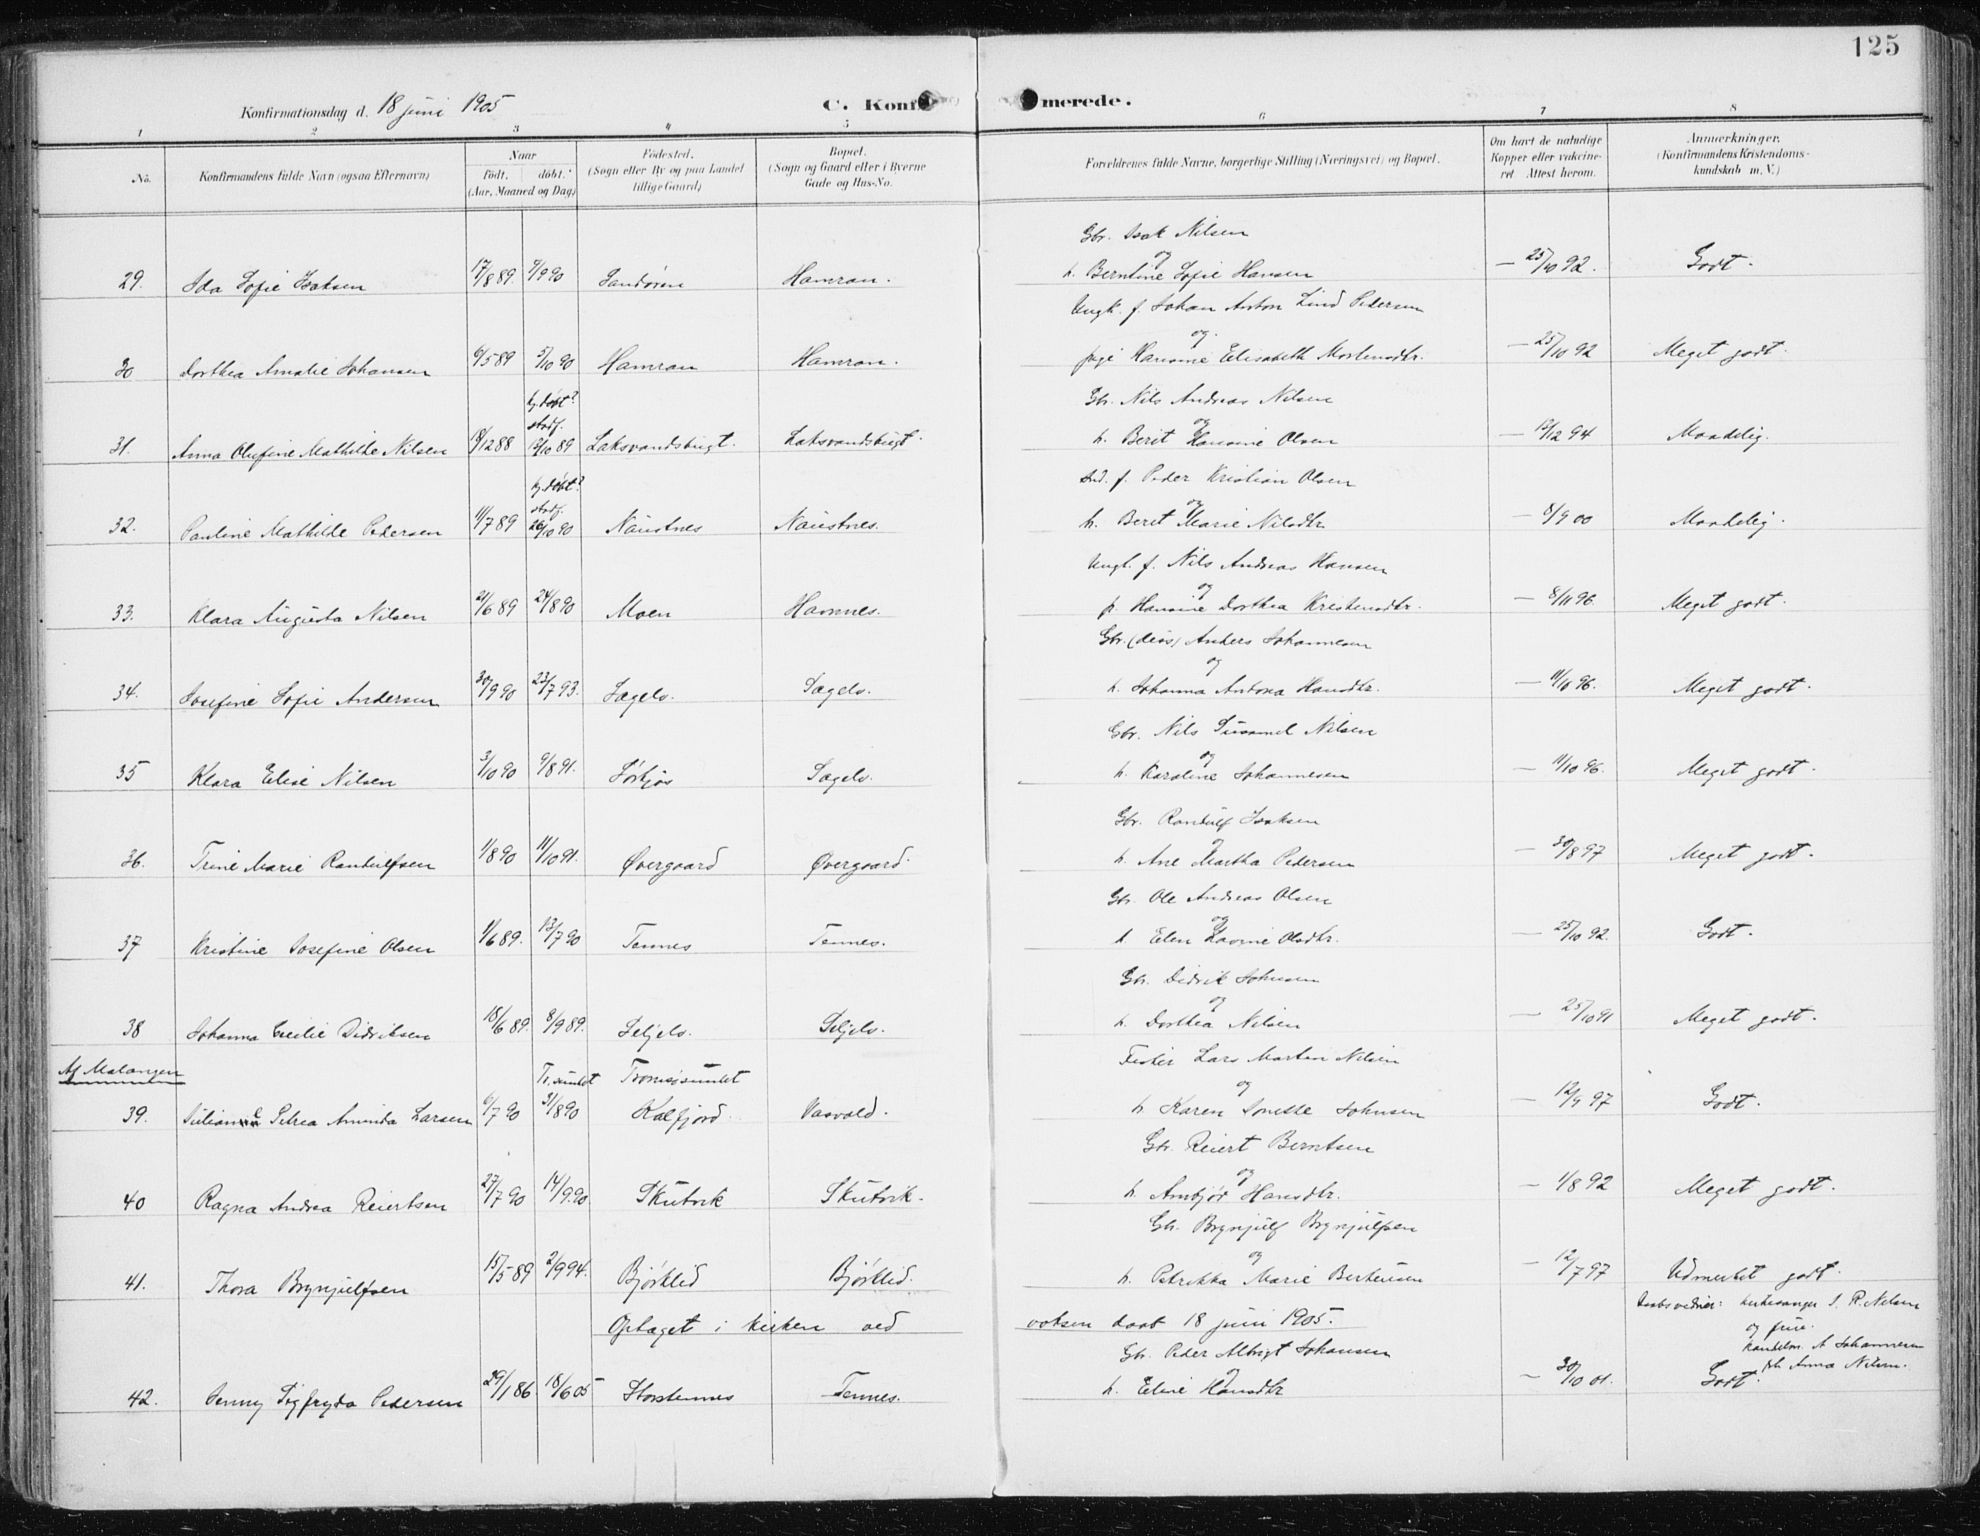 125
Konfirmationsdag d. 18 juni 1905
C. Konf merede.
1 2 3 4 5 6 7 8
No. Konfirmandens fulde Navn (ogsaa Efternavn) Naar født. døbt. (Aar, Maaned og Dag) Fødested. (Sogn eller By og paa Landet tillige Gaard) Bopæl. (Sogn og Gaard eller i Byerne Gade og Hus-No. Forældrenes fulde Navne, borgerlige Stilling (Næringsvei) og Bopæl. Om havt de naturlige Kopper eller vakcineret Attest herom. Anmærkninger. (Konfirmandens Kristendomskundskab m. V.)
Gbr. Isak Nilsen
og
29. Ida Sofie Isaksen 17/8 89. 7/9 90 Sandøren Hamran. h. Berntine Sofie Hansen — 25/10 92. Godt.
Ungk. f. Johan Anton Lind Pedersen
og
30 Dorthea Amalie Johansen 6/5 89 5/10 90 Hamran Hamran. pige Hansine Elisabeth Mortensdtr. — 25/10 92 Meget godt.
Gbr. Nils Andreas Nilsen
hj. døbt? stadf. og
31. Anna Olufine Mathilde Nilsen 8/12 88 13/10 89 Laksvandsbugt. Laksvandsbugt. h. Berit Hansine Olsen — 12/12 94 Maadelig.
Ind. f. Peder Kristian Olsen
hj. døbt? stadf. og
32. Pauline Mathilde Pedersen 11/7 89 26/10 90 Naustnes Naustnes. h. Berit Marie Nilsdtr. — 8/9 00 Maadelig.
Ungk. f. Nils Andreas Hansen
og
33. Klara Augusta Nilsen 21/6 89 24/8 90 Moen Havnnes. p. Hansine Dorthea Kristensdtr. — 8/11 96. Meget godt.
Gbr. (døds) Anders Johannesen
og
34. Josefine Sofie Andersen 30/9 90 23/7 93. Sagelv. Sagelv. h. Johanna Antona Hansdtr. — 11/10 96. Meget godt.
Gbr. Nils Nilsen
og
35 Klara Elise Nilsen 3/10 90 9/8 91. Sagelv. h. Karoline Johannesen — 11/10 96. Meget godt.
Gbr. Randulf Isaksen
og
36. Trine Marie Randulfsen 1/8 90 11/10 91. Øvergaard Øvergaard. h. Ane Martha Pedersen — 30/8 97 Meget godt.
Gbr. Ole Andreas Olsen
og
37 Kristine Josefine Olsen 1/6 89. 13/7 90 Tennes Tennes. h. Elen Lavine Olsdtr. — 25/10 92. Godt.
Gbr. Didrik Johnsen
og
38 Johanna Cecilie Didriksen 18/6 89. 8/9 89. Seljelv. Seljelv. h. Dorthea Nilsen — 25/10 91 Meget godt.
Af Malangen
Fisker Lars Martin Nilsen
Tr. sundet Tromsøsundet og
39. Petrea Aminda Larsen 6/7 90 31/8 90 Kalfjord. Vasvold. h. Karen Johnsen — 12/9 97 Godt.
Gbr. Reiert Berntsen
og
40 Ragna Andrea Reiertsen 27/7 90 14/9 90. Skutvik Skutvik. h. Anbjør Hansdtr. — 1/8 92 Meget godt.
Gbr. Brynjulf Brynjulfsen
og
41. Thora Brynjulfsen 15/5 89 2/9 94. Bjørklid Bjørklid. h. Petrikka Marie Berteusen — 12/7 97 Udmerket godt.
Optaget i kirken ved voksen daab 18 juni 1905. Daabsvidner: kirkesanger I. R. Nilsen og frue.
Gbr. Peder Albrigt Johansen Handelsm. A Johannesen
og Anna Nilsen.
42. Jenny Sigfryda Pedersen 29/1 86. 18/6 05 Storstennes Tennes. h. Eline Hansdtr — 30/10 01. Godt.